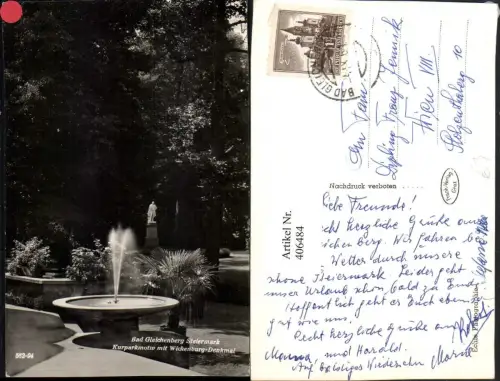 Bad Gleichenberg Steiermark
Kurparkmotiv mit Wickenburg-Denkmal
952-94
BAD GLEICHENBERG
An Fam.
Dipling Franz Jennik
Wien VIII
10
Nachdruck verboten
Artikel Nr.
406484
Liebe Freunde!
Recht herzliche Grüße aus
Gleichenberg. Wir fahren bei
Wetter durch unsere
schöne Steiermark. Leider geht
unser Urlaub schon bald zu Ende
Hoffentlich geht es Euch eben
gut wie uns.
Recht herzliche Grüße an
Mama, und Harald.
Auf baldiges Wiedersehen